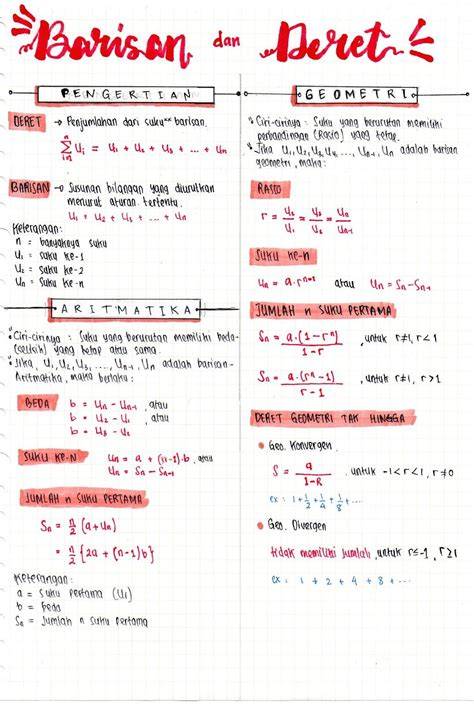 Barisan dan Deret
PENGERTIAN
DERET → Penjumlahan dari suku²ⁿ barisan.
n Σ i=n Ui = U1 + U2 + U3 + ... + Un
BARISAN → Susunan bilangan yang diurutkan
menurut aturan tertentu.
U1 + U2 + U3 + ... + Un
Keterangan:
n = banyaknya suku
U1 = suku ke-1
U2 = suku ke-2
Un = suku ke-n
ARITMATIKA
• Ciri-cirinya : Suku yang berurutan memiliki beda
(selisih) yang tetap atau sama.
• Jika, U1, U2, U3, ..., Un-1, Un adalah barisan-
Aritmatika, maka berlaku :
BEDA b = Un - Un-1, atau
b = U2 - U1, atau
b = U3 - U2
SUKU KE-N Un = a + (n-1).b, atau
Un = Sn - Sn-1
JUMLAH n SUKU PERTAMA
Sn = n/2 (a+Un)
= n/2 {2a + (n-1)b}
Keterangan :
a = Suku pertama (U1)
b = Beda
Sn = Jumlah n suku pertama
GEOMETRI
• Ciri-cirinya : Suku yang berurutan memiliki
perbandingan (Rasio) yang tetap.
• Jika U1, U2, U3, U4, ..., Un-1, Un adalah barisan
geometri, maka:
RASIO
r = U2/U1 = U3/U2 = Un/Un-1
SUKU KE-n
Un = a.rⁿ⁻¹ atau Un = Sn - Sn-1
JUMLAH n SUKU PERTAMA
Sn = a.(1-rⁿ)/1-r , untuk r≠1, r<1
Sn = a.(rⁿ-1)/r-1 , untuk r≠1, r>1
DERET GEOMETRI TAK HINGGA
• Geo. Konvergen.
S = a/1-R , untuk -1<r<1, r≠0
ex : 1+1/2+1/4+1/8+...
• Geo. Divergen
tidak memiliki jumlah, untuk r≤-1, r≥1
ex : 1 + 2 + 4 + 8 + ...